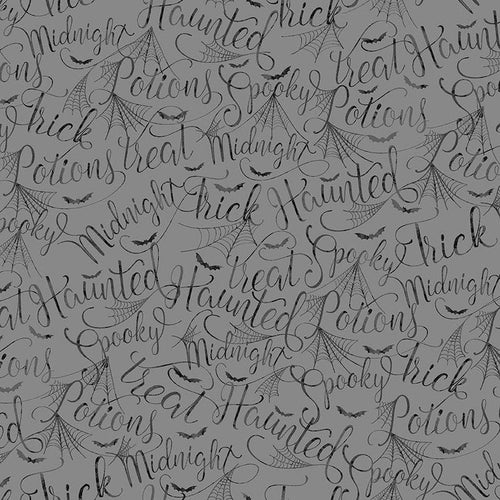 Trick
Midnight Haunted
treat Haunted
Potions Spooky Potions Spooky
Trick treat Midnight
Potions Haunted
Spooky Midnight Trick Spooky Trick
treat Midnight
at Haunted Haunted Potions
Potions Spooky Midnight Spooky Trick
treat Haunted Potions
Potions Midnight